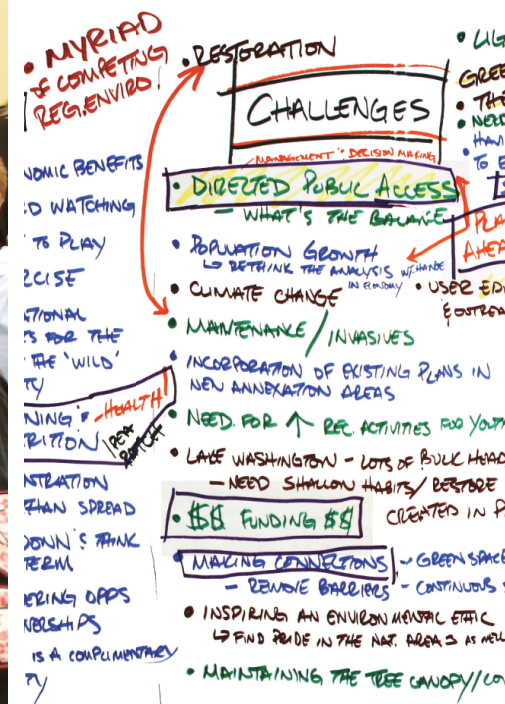 • MYRIAD
OF COMPETING
REG. ENVIRO!
NOMIC BENEFITS
D WATCHING
TO PLAY
RCISE
ATIONAL
S FOR THE
THE 'WILD'
TY
NING & - HEALTH
RITION
NSTRATION
THAN SPREAD
DOWN & THINK
TERM
ERING OPPS
NERSHIPS
IS A COMPLIMENTARY
TY
• RESTORATION
CHALLENGES
MANAGEMENT & DECISION MAKING
• DIRECTED PUBLIC ACCESS
- WHAT'S THE BALANCE
• POPULATION GROWTH
↳ RETHINK THE ANALYSIS W/ CHANGE
IN ECONOMY
• CLIMATE CHANGE
• MAINTENANCE / INVASIVES
• INCORPORATION OF EXISTING PLANS IN
NEW ANNEXATION AREAS
• NEED FOR ↑ REC. ACTIVITIES FOR YOUTH
• LAKE WASHINGTON - LOTS OF BULK HEAD
- NEED SHALLOW HABITS / RESTORE
CREATED IN P
• $$ FUNDING $$
• MAKING CONNECTIONS - GREENSPACE
- REMOVE BARRIERS - CONTINUOUS
• INSPIRING AN ENVIRONMENTAL ETHIC
↳ FIND PRIDE IN THE NAT. AREAS AS WELL
• MAINTAINING THE TREE CANOPY / CO
• LIG
GREE
• THE
• NEED
• HAVI
TO E
PLA
AHEA
• USER ED
& OUTREA